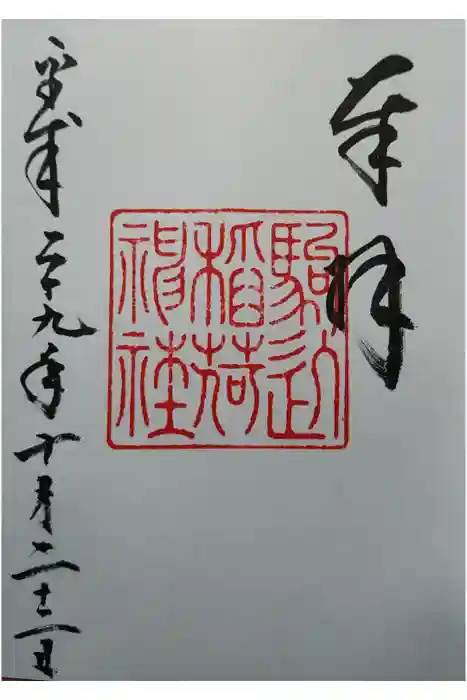 奉拝
駒込
稲荷
神社
平成二十九年十月二十二日